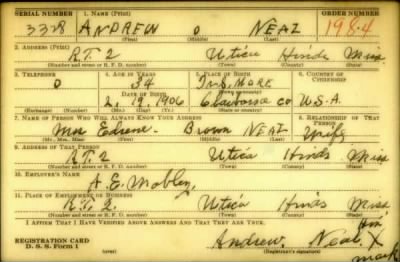 SERIAL NUMBER 1. NAME (Print) ORDER NUMBER
3328 ANDREW O NEAL 1984
(First) (Middle) (Last)
2. ADDRESS (Print)
R.T. 2 Utica Hinds Miss
(Number and street or R. F. D. number) (Town) (County) (State)
3. TELEPHONE 4. AGE IN YEARS 5. PLACE OF BIRTH 6. COUNTRY OF CITIZENSHIP
O 34
DATE OF BIRTH (Town or county)
2, 19, 1906 Claiborne Co U.S.A.
(Exchange) (Number) (Mo.) (Day) (Yr.) (State or country)
7. NAME OF PERSON WHO WILL ALWAYS KNOW YOUR ADDRESS 8. RELATIONSHIP OF THAT PERSON
Mrs Brown Neal Wife
(Mr., Mrs., Miss) (First) (Middle) (Last)
9. ADDRESS OF THAT PERSON
R.T. 2 Utica Hinds Miss
(Number and street or R. F. D. number) (Town) (County) (State)
10. EMPLOYER'S NAME
A. E. Mobley
11. PLACE OF EMPLOYMENT OR BUSINESS
R.T. 2. Utica Hinds Miss
(Number and street or R. F. D. number) (Town) (County) (State)
I AFFIRM THAT I HAVE VERIFIED ABOVE ANSWERS AND THAT THEY ARE TRUE.
his
REGISTRATION CARD Andrew Neal X
D. S. S. Form 1 (Registrant's signature) mark